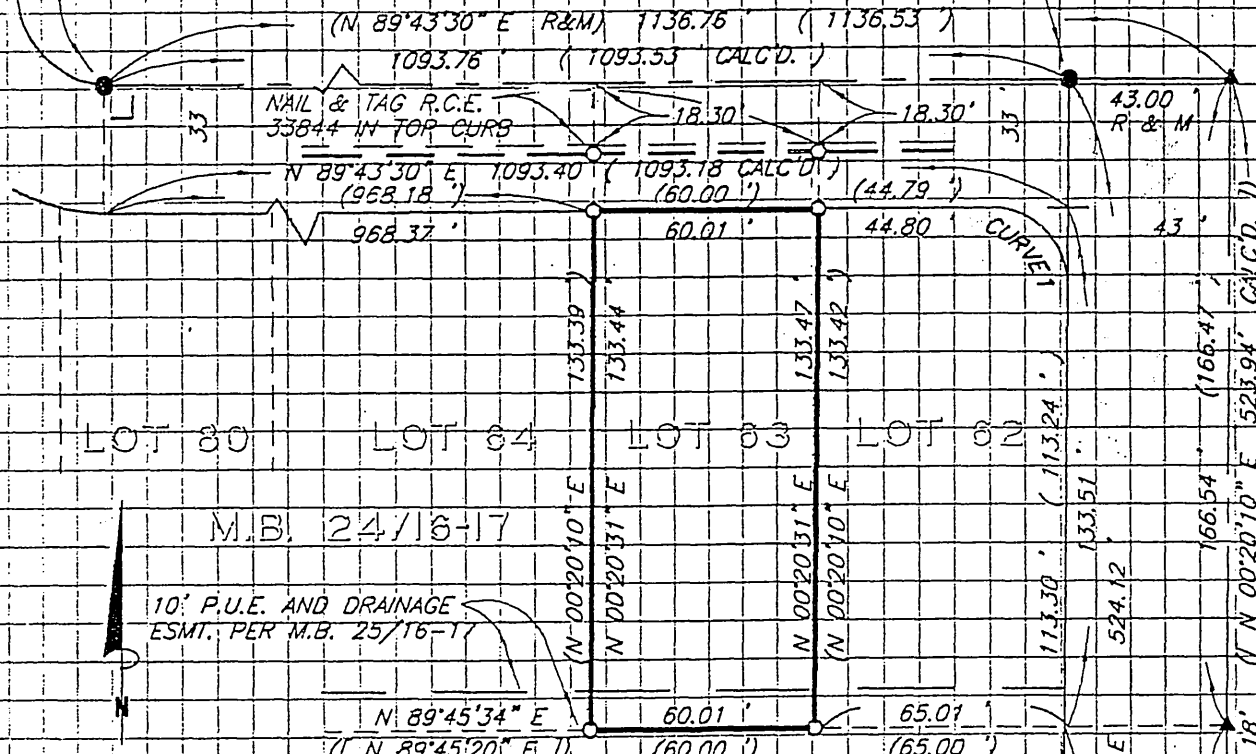 (N 89°43'30" E R&M) 1136.76 ' ( 1136.53 ')
1093.76 ' ( 1093.53 ' CALC'D. )
NAIL & TAG R.C.E.
33844 IN TOP CURB
33'
18.30'
18.30'
33'
43.00 '
R & M
N 89°43'30" E 1093.40 ' ( 1093.18 CALC'D )
(968.18 ')
(60.00 ')
(44.79 ')
968.37 '
60.01 '
44.80 '
CURVE 1
43 '
(133.39 ')
133.44 '
133.47 '
(133.42 ')
(166.47 ')
LOT 80
LOT 64
LOT 63
LOT 62
( 113.24 ' )
133.51 '
166.54 '
M.B. 24/16-17
(N 00°20'10" E
N 00°20'31" E
N 00°20'31" E
(N 00°20'10" E
113.30 '
524.12 '
N 00°20'10" E 523.94' CALC'D
10' P.U.E. AND DRAINAGE
ESMT. PER M.B. 25/16-17
N
N 89°45'34" E
60.01 '
65.01 '
N 89°45'20" E
(60.00 ')
(65.00 ')
E